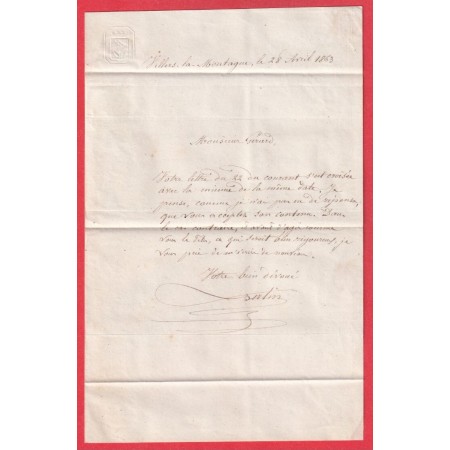 Villers-la-Montagne, le 28 Avril 1863
Monsieur Girard,
Votre lettre du 22 du courant s'est croisée
avec la mienne de la même date. Je
pense, comme je n'ai pas eu de réponse,
que vous acceptez son contenu. Dans
le cas contraire, avant d'agir comme
vous le dites, ce qui serait plus
je
vous prie de m'écrire de nouveau.
Votre bien dévoué